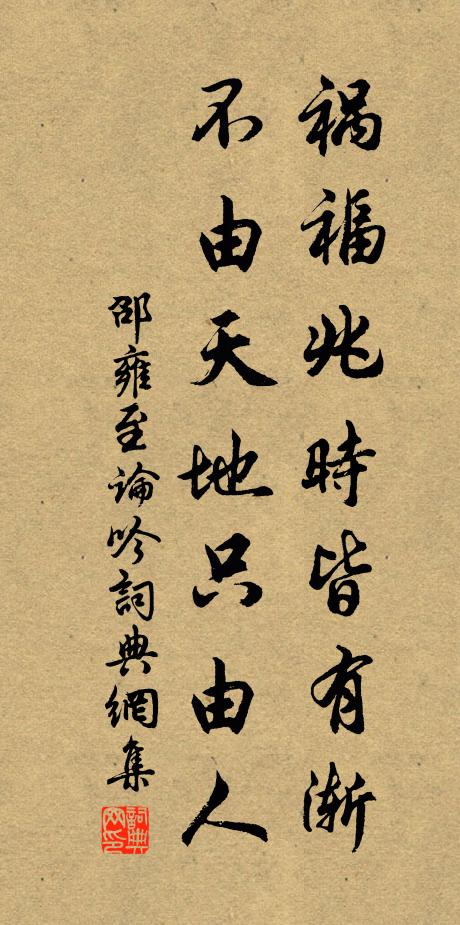 禍福兆時皆有漸
不由天地只由人
邵雍至論吟詞典網集
詞典網印